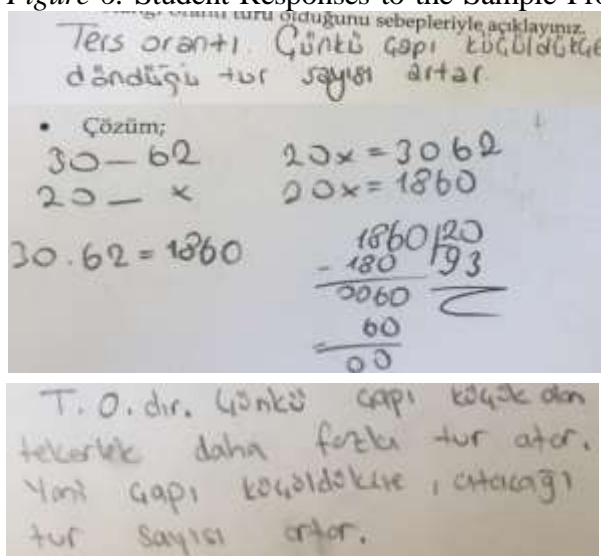 Figure 6. Student Responses to the Sample Pro
oranı türü olduğunu sebepleriyle açıklayınız.
Ters orantı. Çünkü çapı küçüldükçe
döndüğü tur sayısı artar
• Çözüm;
30 — 62
20 — x
30.62 = 1860
20x = 30 62
20x = 1860
1860 20
- 180 93
0060
60
00
T.O.dır. Çünkü çapı küçük olan
tekerlek daha fazla tur atar.
Yani çapı küçüldükçe, atacağı
tur sayısı artar.